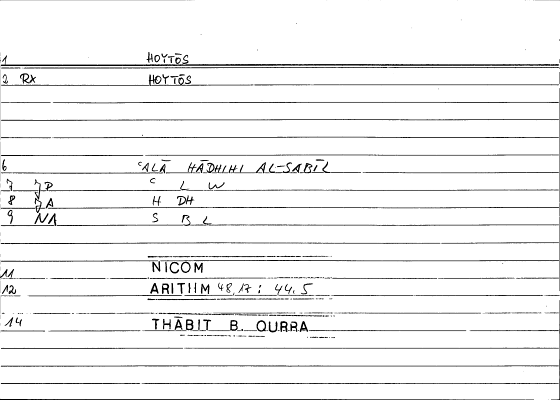 1 HOYTŌS
2 RX HOYTŌS
6 ʿALĀ HĀDHIHI AL-SABĪL
7 JP ʿ L W
8 JA H DH
9 NA S B L
11 NICOM
12 ARITHM 48,17 : 44.5
14 THĀBIT B. QURRA